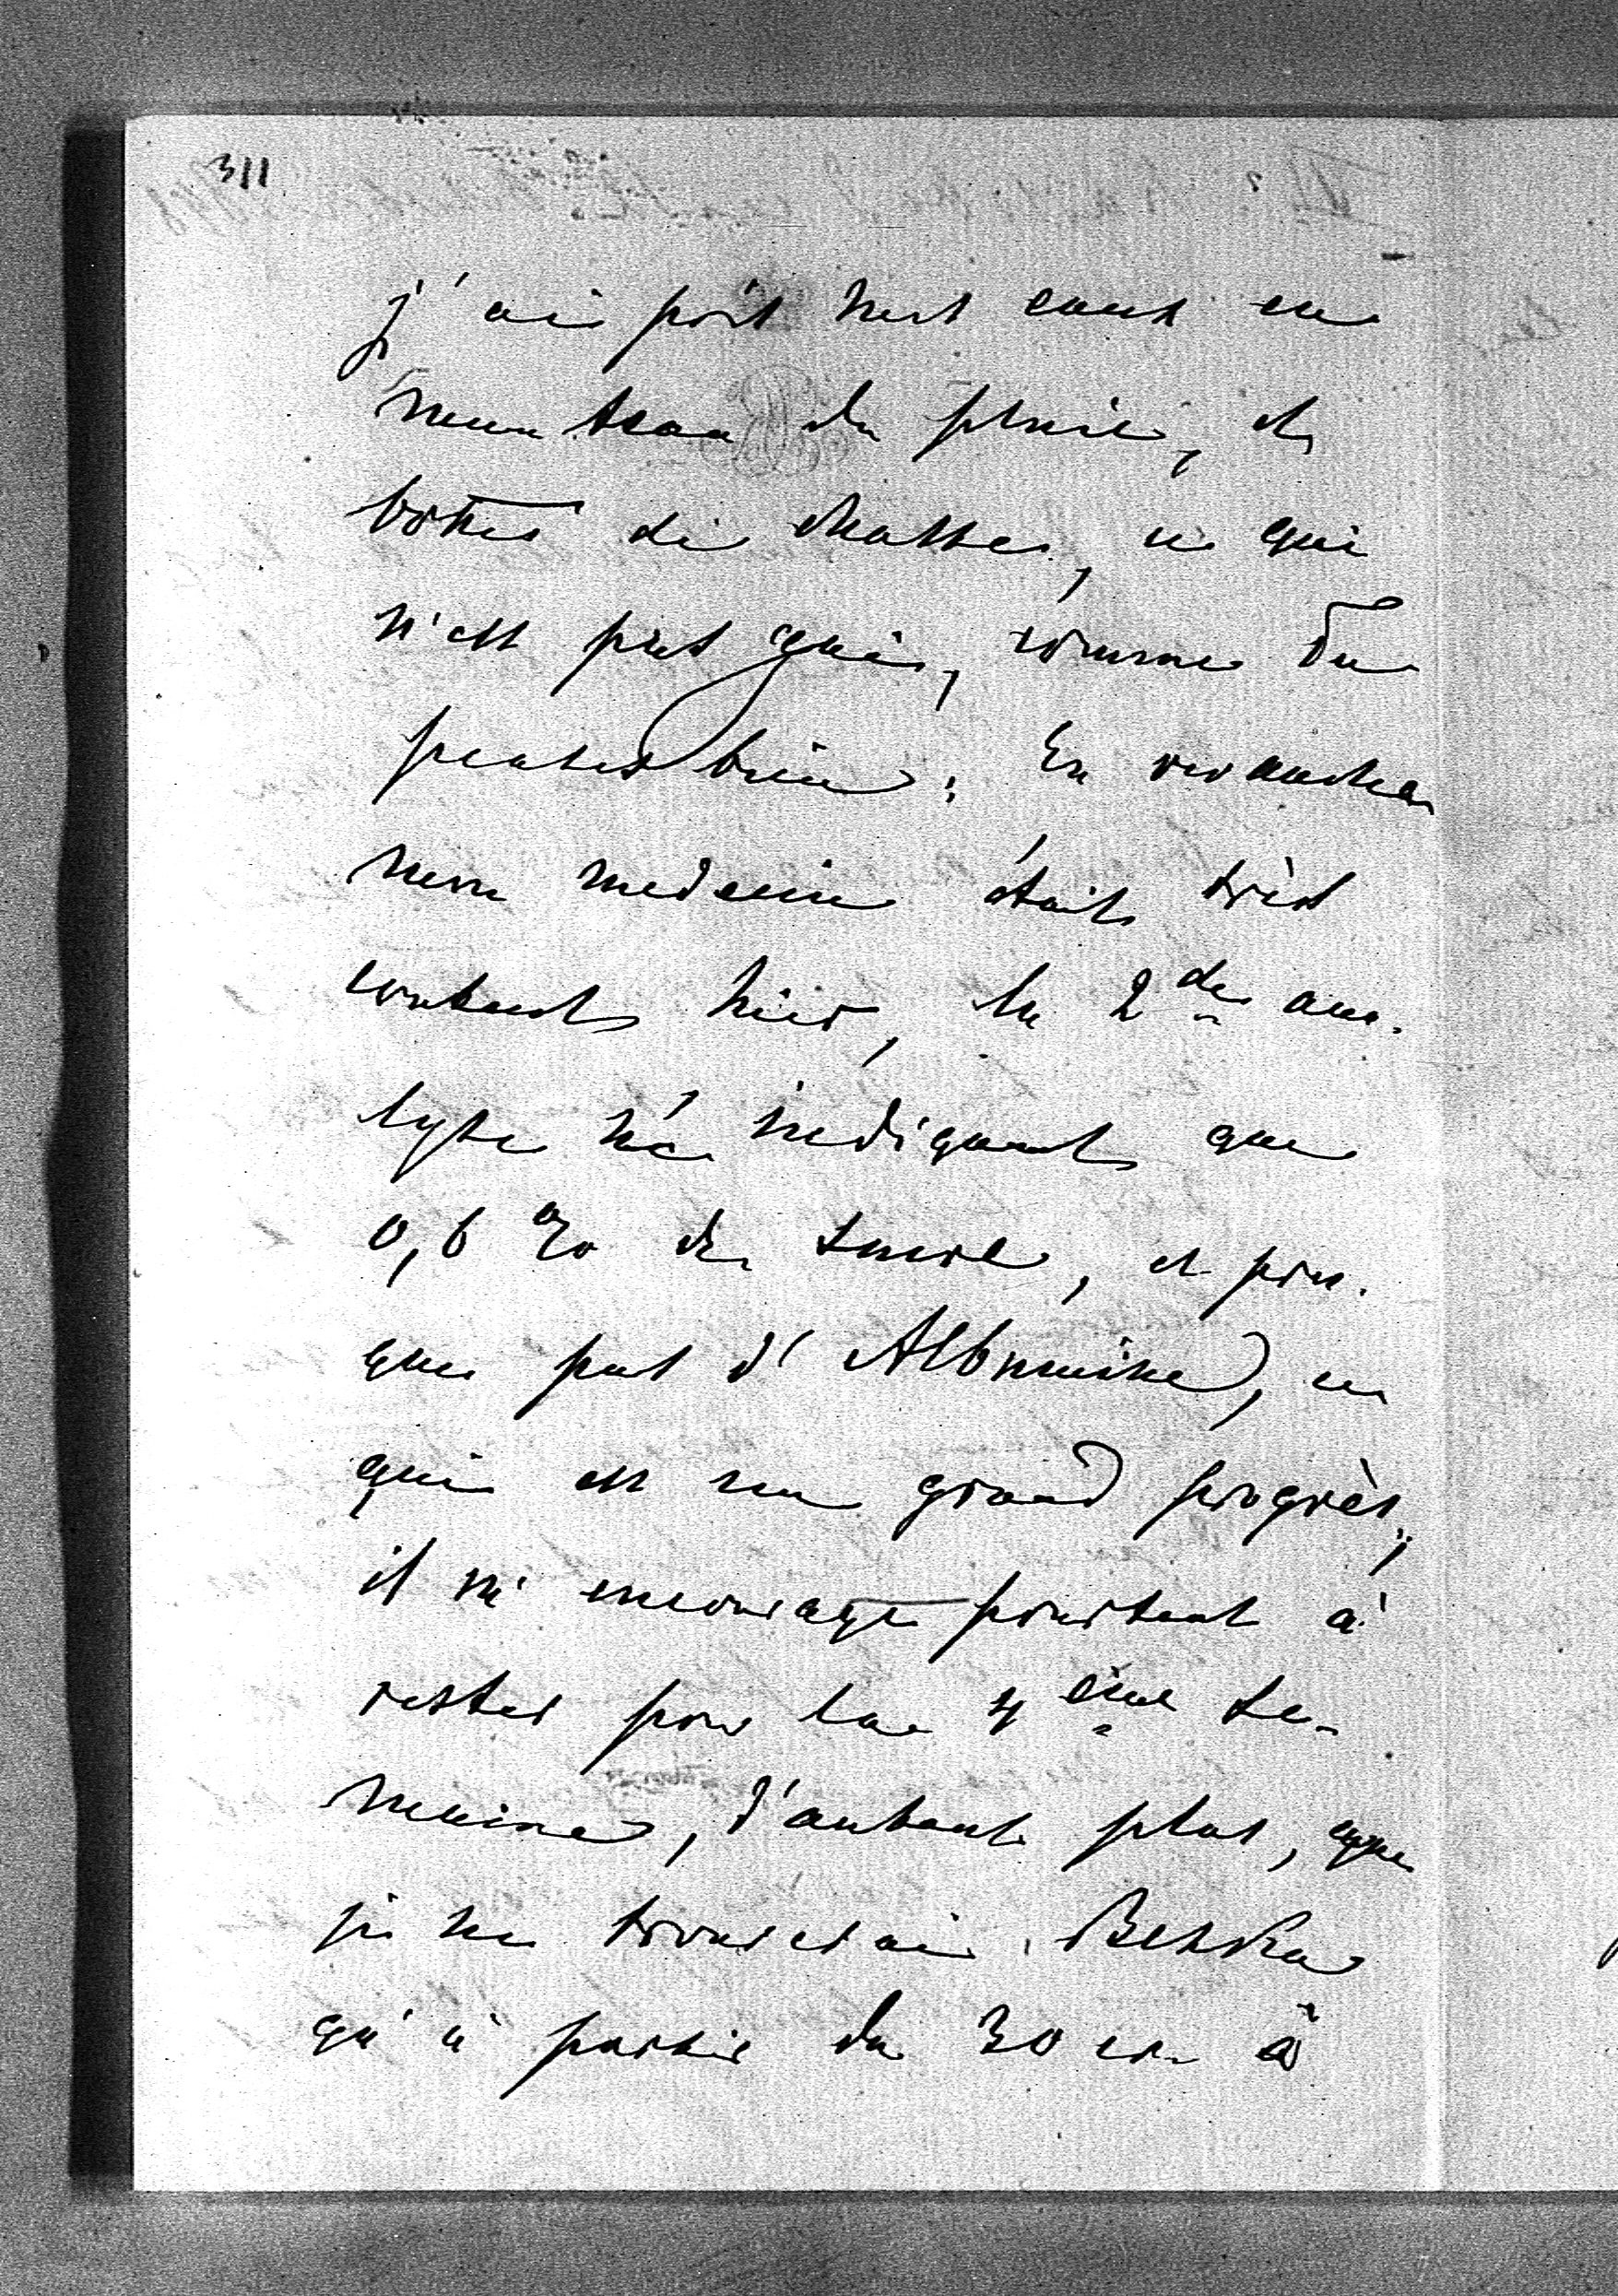 311
j'ai pris mes eaux en
manteau de pluie, et
bottes de chasse, ce qui
n'est pas gai, comme Tu
penses bien. En revanche
mon medecin était très
content hier, la 2de ana-
lyse n'a indiquant que
0,6 % de sucre, et pres-
que pas d'Albumine, ce
qui est un grand progrès,
il m'encourage pourtant à
rester pour la 4ème se-
maine, d'autant plus, que
je ne trouverai Becka
qu'à partir du 30 cr. à